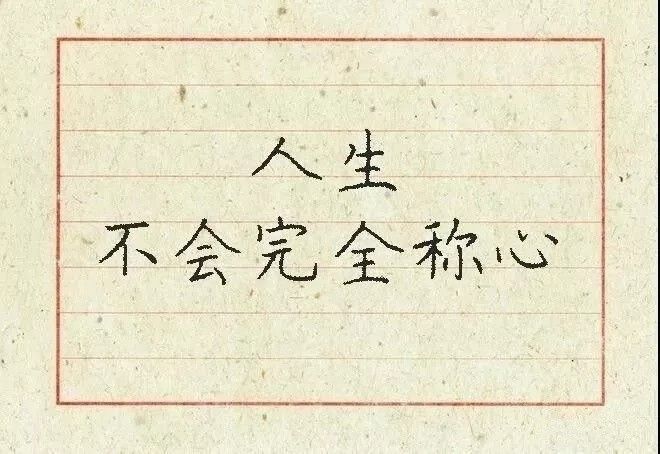 人生
不会完全称心